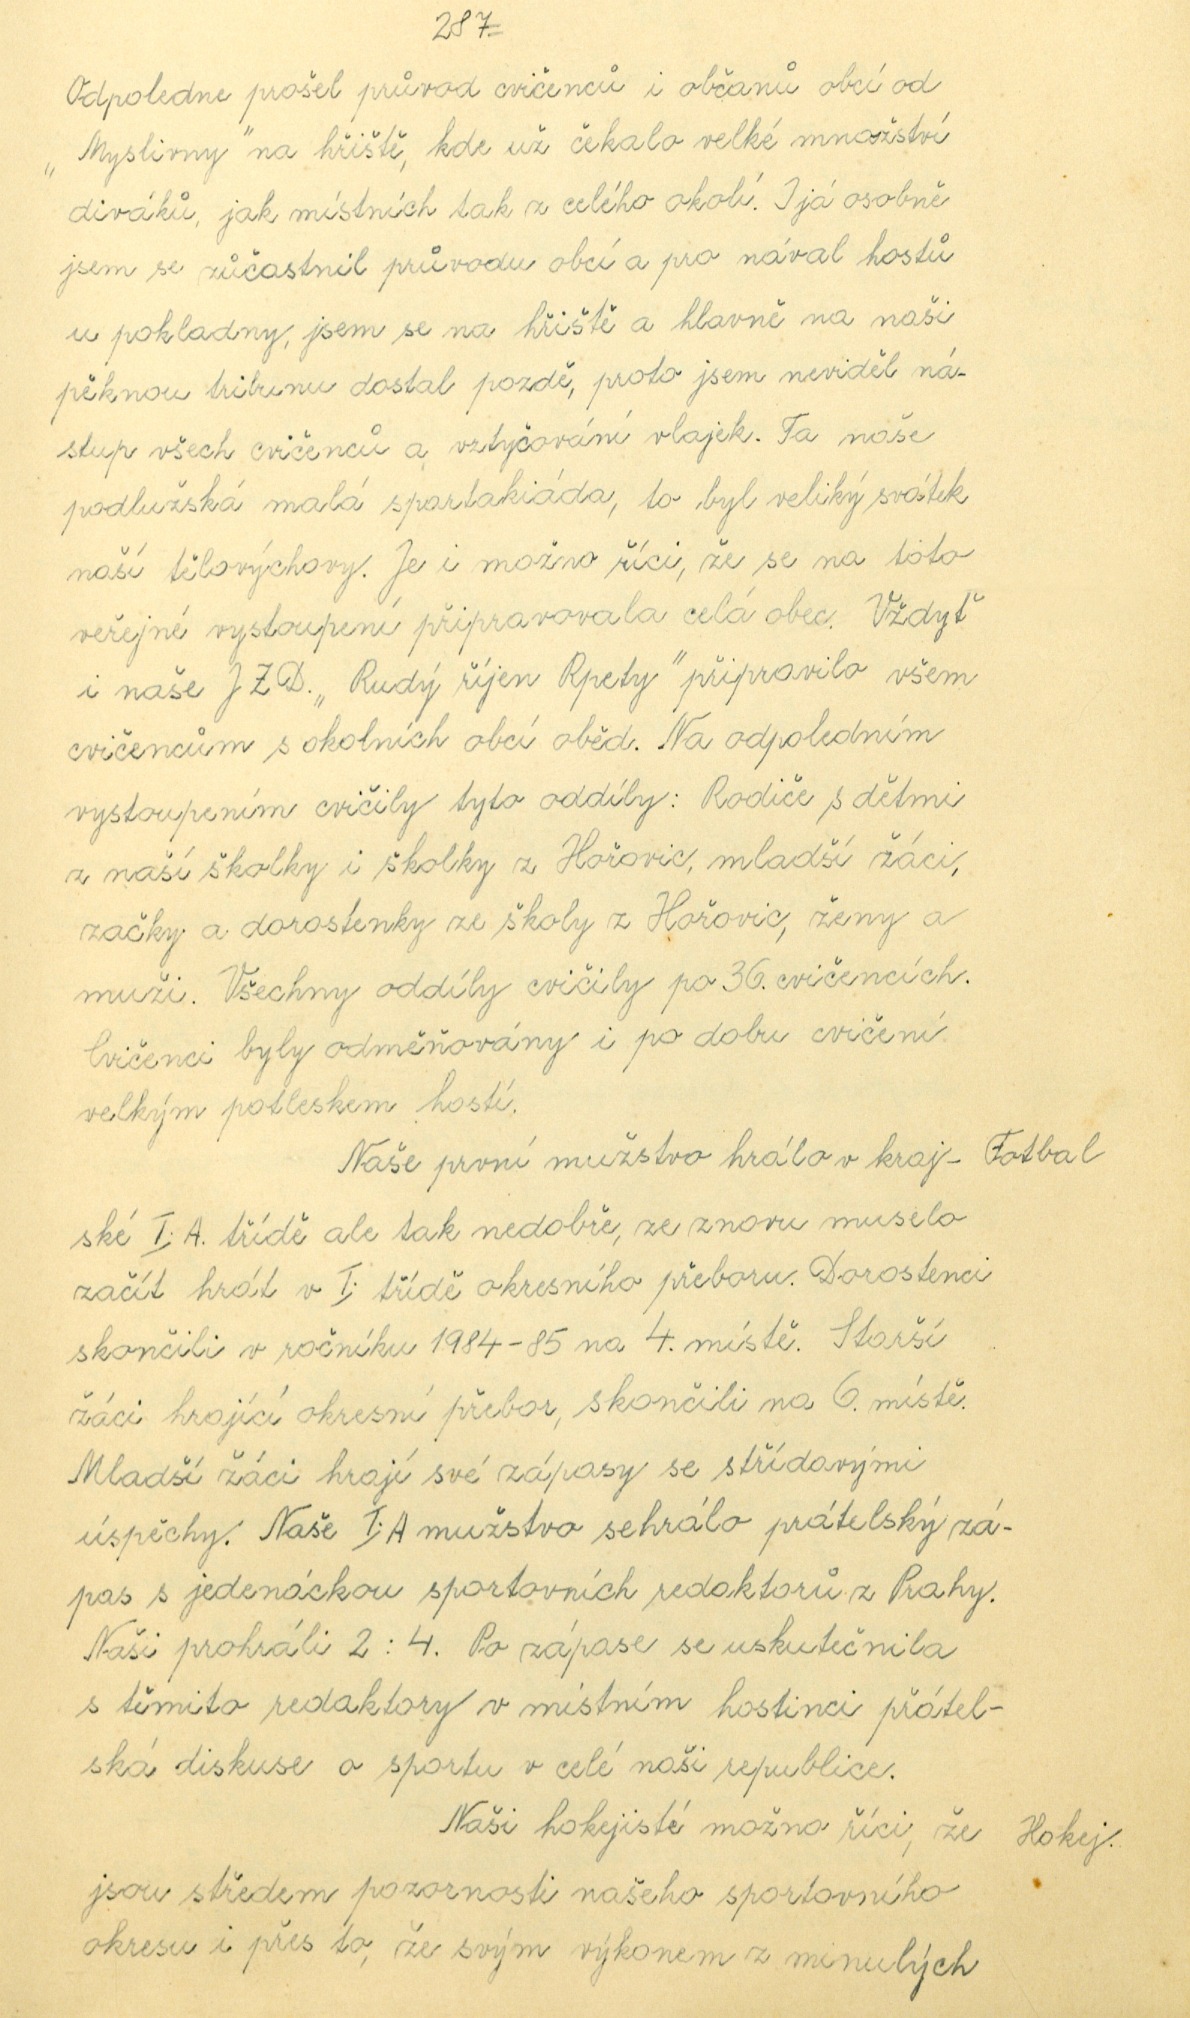 287=
Odpoledne prošel průvod cvičenců i občanů obcí od
„Myslivny" na hřiště, kde už čekalo velké množství
diváků, jak místních tak z celého okolí. I já osobně
jsem se zůčastnil průvodu obcí a pro nával hostů
u pokladny, jsem se na hřiště a hlavně na naši
pěknou tribunu dostal pozdě, proto jsem neviděl ná-
stup všech cvičenců a vztyčování vlajek. Ta naše
podlužská malá spartakiáda, to byl veliký svátek
naší tělovýchovy. Je i možno říci, že se na toto
veřejné vystoupení připravovala celá obec. Vždyť
i naše JZD. „Rudý říjen Rpety" připravilo všem
cvičencům s okolních obcí oběd. Na odpoledním
vystoupením cvičily tyto oddíly: Rodiče s dětmi
z naší školky i školky z Hořovic, mladší žáci,
začky a dorostenky ze školy z Hořovic, ženy a
muži. Všechny oddíly cvičily po 36. cvičencích.
Cvičenci byly odměňovány i po dobu cvičení
velkým potleskem hostí.
Naše první mužstvo hrálo v kraj- Fotbal
ské I. A. třídě ale tak nedobře, ze znovu muselo
začít hrát v I. třídě okresního přeboru. Dorostenci
skončili v ročníku 1984-85 na 4. místě. Starší
žáci hrající okresní přebor, skončili na 6. místě.
Mladší žáci hrají své zápasy se střídavými
úspěchy. Naše I. A mužstvo sehrálo prátelský zá-
pas s jedenáckou sportovních redaktorů z Prahy.
Naši prohráli 2 : 4. Po zápase se uskutečnila
s těmito redaktory v místním hostinci přátel-
ská diskuse o sportu v celé naši republice.
Naši hokejisté možno říci, že Hokej.
jsou středem pozornosti našeho sportovního
okresu i přes to, že svým výkonem z minulých